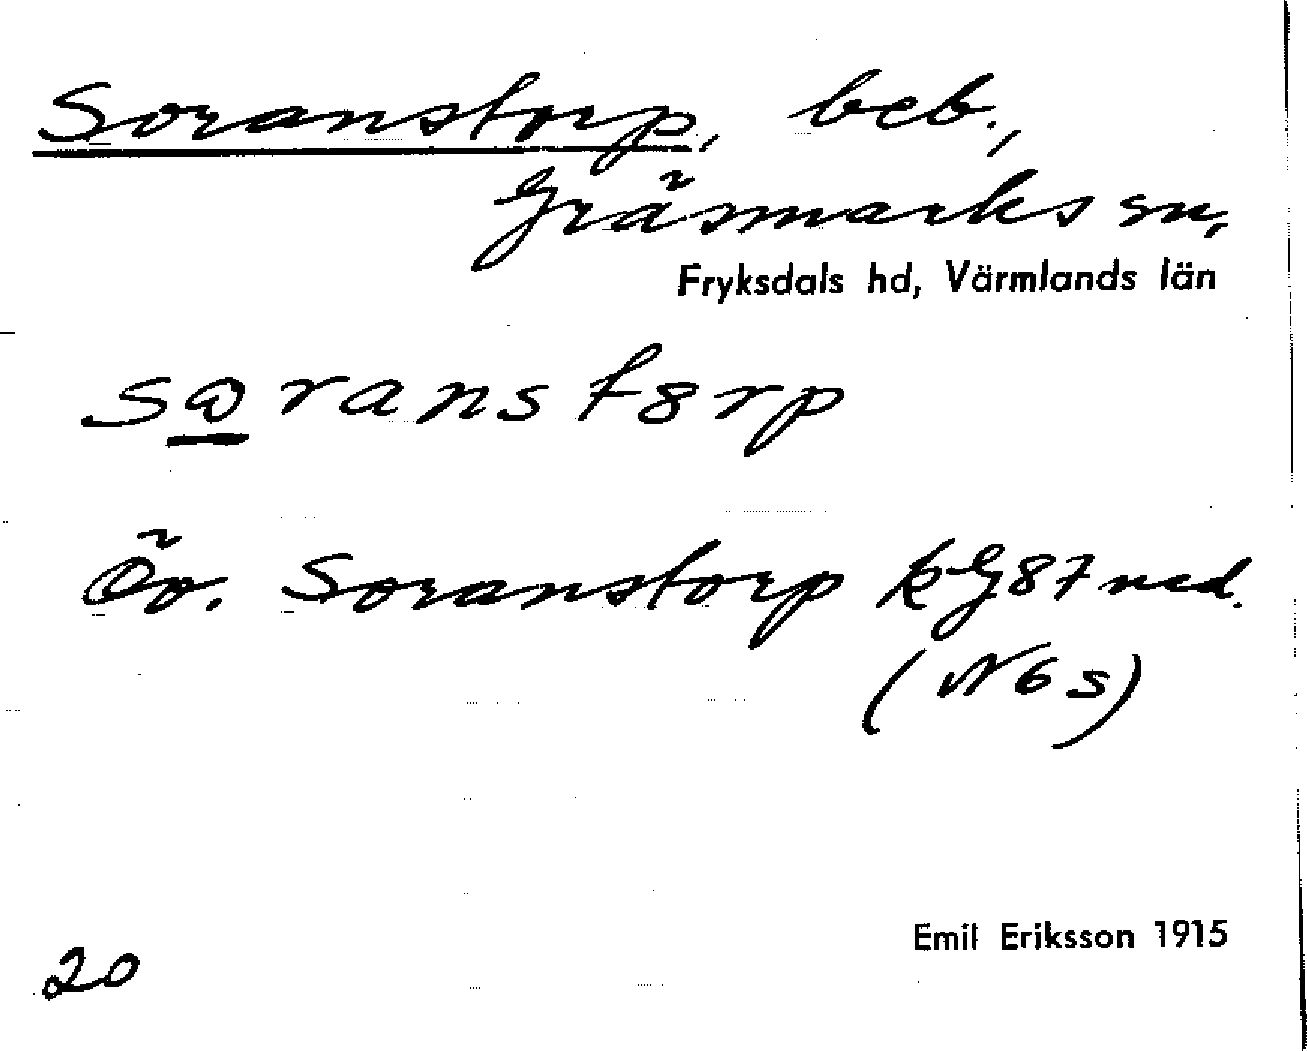 Soranstorp, beb.,
Gräsmarks sn,
Fryksdals hd, Värmlands län
sωranst8rp
Öv. Soranstorp kG87 ned.
(N6s)
Emil Eriksson 1915
20